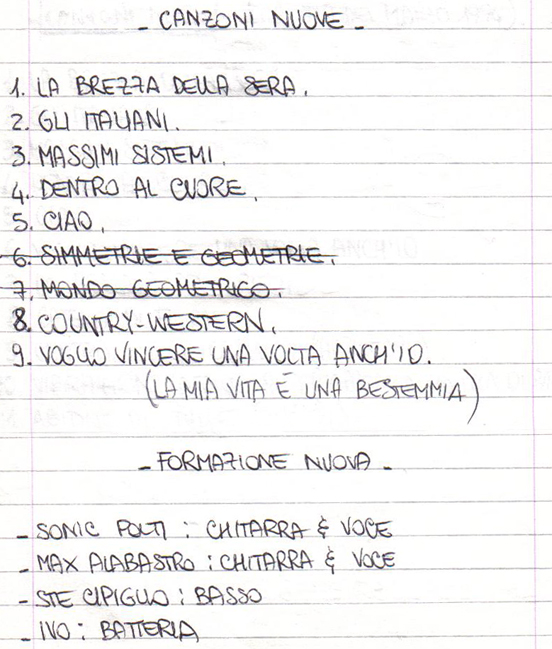 - CANZONI NUOVE -
1. LA BREZZA DELLA SERA.
2. GLI ITALIANI.
3. MASSIMI SISTEMI.
4. DENTRO AL CUORE.
5. CIAO.
6. SIMMETRIE E GEOMETRIE.
7. MONDO GEOMETRICO.
8. COUNTRY-WESTERN.
9. VOGLIO VINCERE UNA VOLTA ANCH'IO.
(LA MIA VITA È UNA BESTEMMIA)
- FORMAZIONE NUOVA -
- SONIC POLTI : CHITARRA & VOCE
- MAX ALABASTRO : CHITARRA & VOCE
- STE CIPIGLIO : BASSO
- IVO : BATTERIA